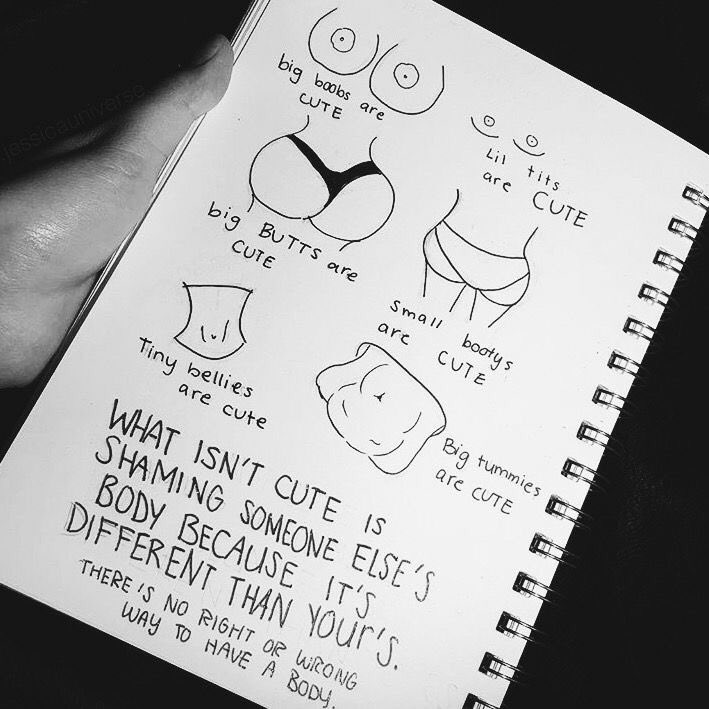 jessicauniverse
big boobs are
CUTE
Lil tits
are CUTE
big BUTTS are
CUTE
small bootys
are CUTE
Tiny bellies
are cute
Big tummies
are CUTE
WHAT ISN'T CUTE IS
SHAMING SOMEONE ELSE'S
BODY BECAUSE IT'S
DIFFERENT THAN YOUR'S.
THERE IS NO RIGHT OR WRONG
WAY TO HAVE A BODY.